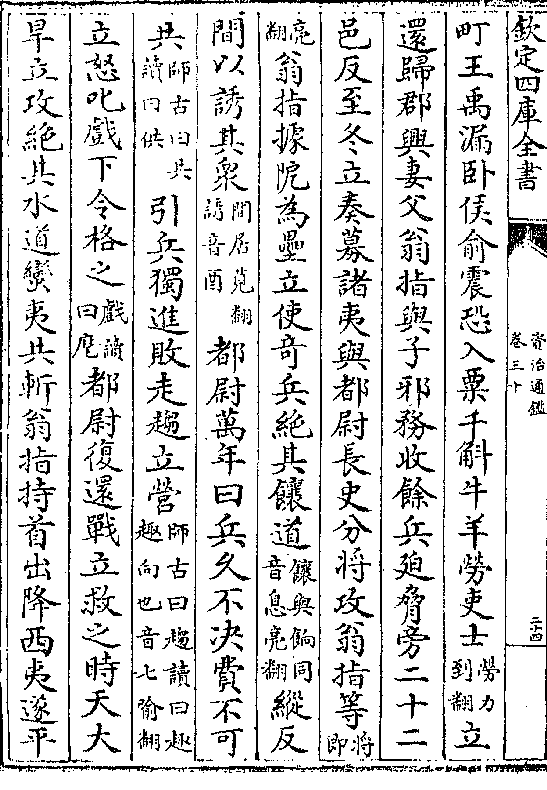 欽定四庫全書
資治通鑑
卷三十
二十四
町王禹漏卧侯俞震恐入粟千斛牛羊勞吏士勞力到翻立
還歸郡興妻父翁指與子邪務收餘兵廹脅旁二十二
邑反至冬立奏募諸夷與都尉長史分將攻翁指等將即
亮翻翁指據阨為壘立使奇兵絶其饟道饟與餉同音息亮翻縱反
間以誘其衆間居莧翻誘音酉都尉萬年曰兵久不决費不可
共師古曰共讀曰供引兵獨進敗走趨立營師古曰趨讀曰趣趣向也音七喻翻
立怒叱戲下令格之戲讀曰麾都尉復還戰立救之時天大
旱立攻絶其水道蠻夷共斬翁指持首出降西夷遂平